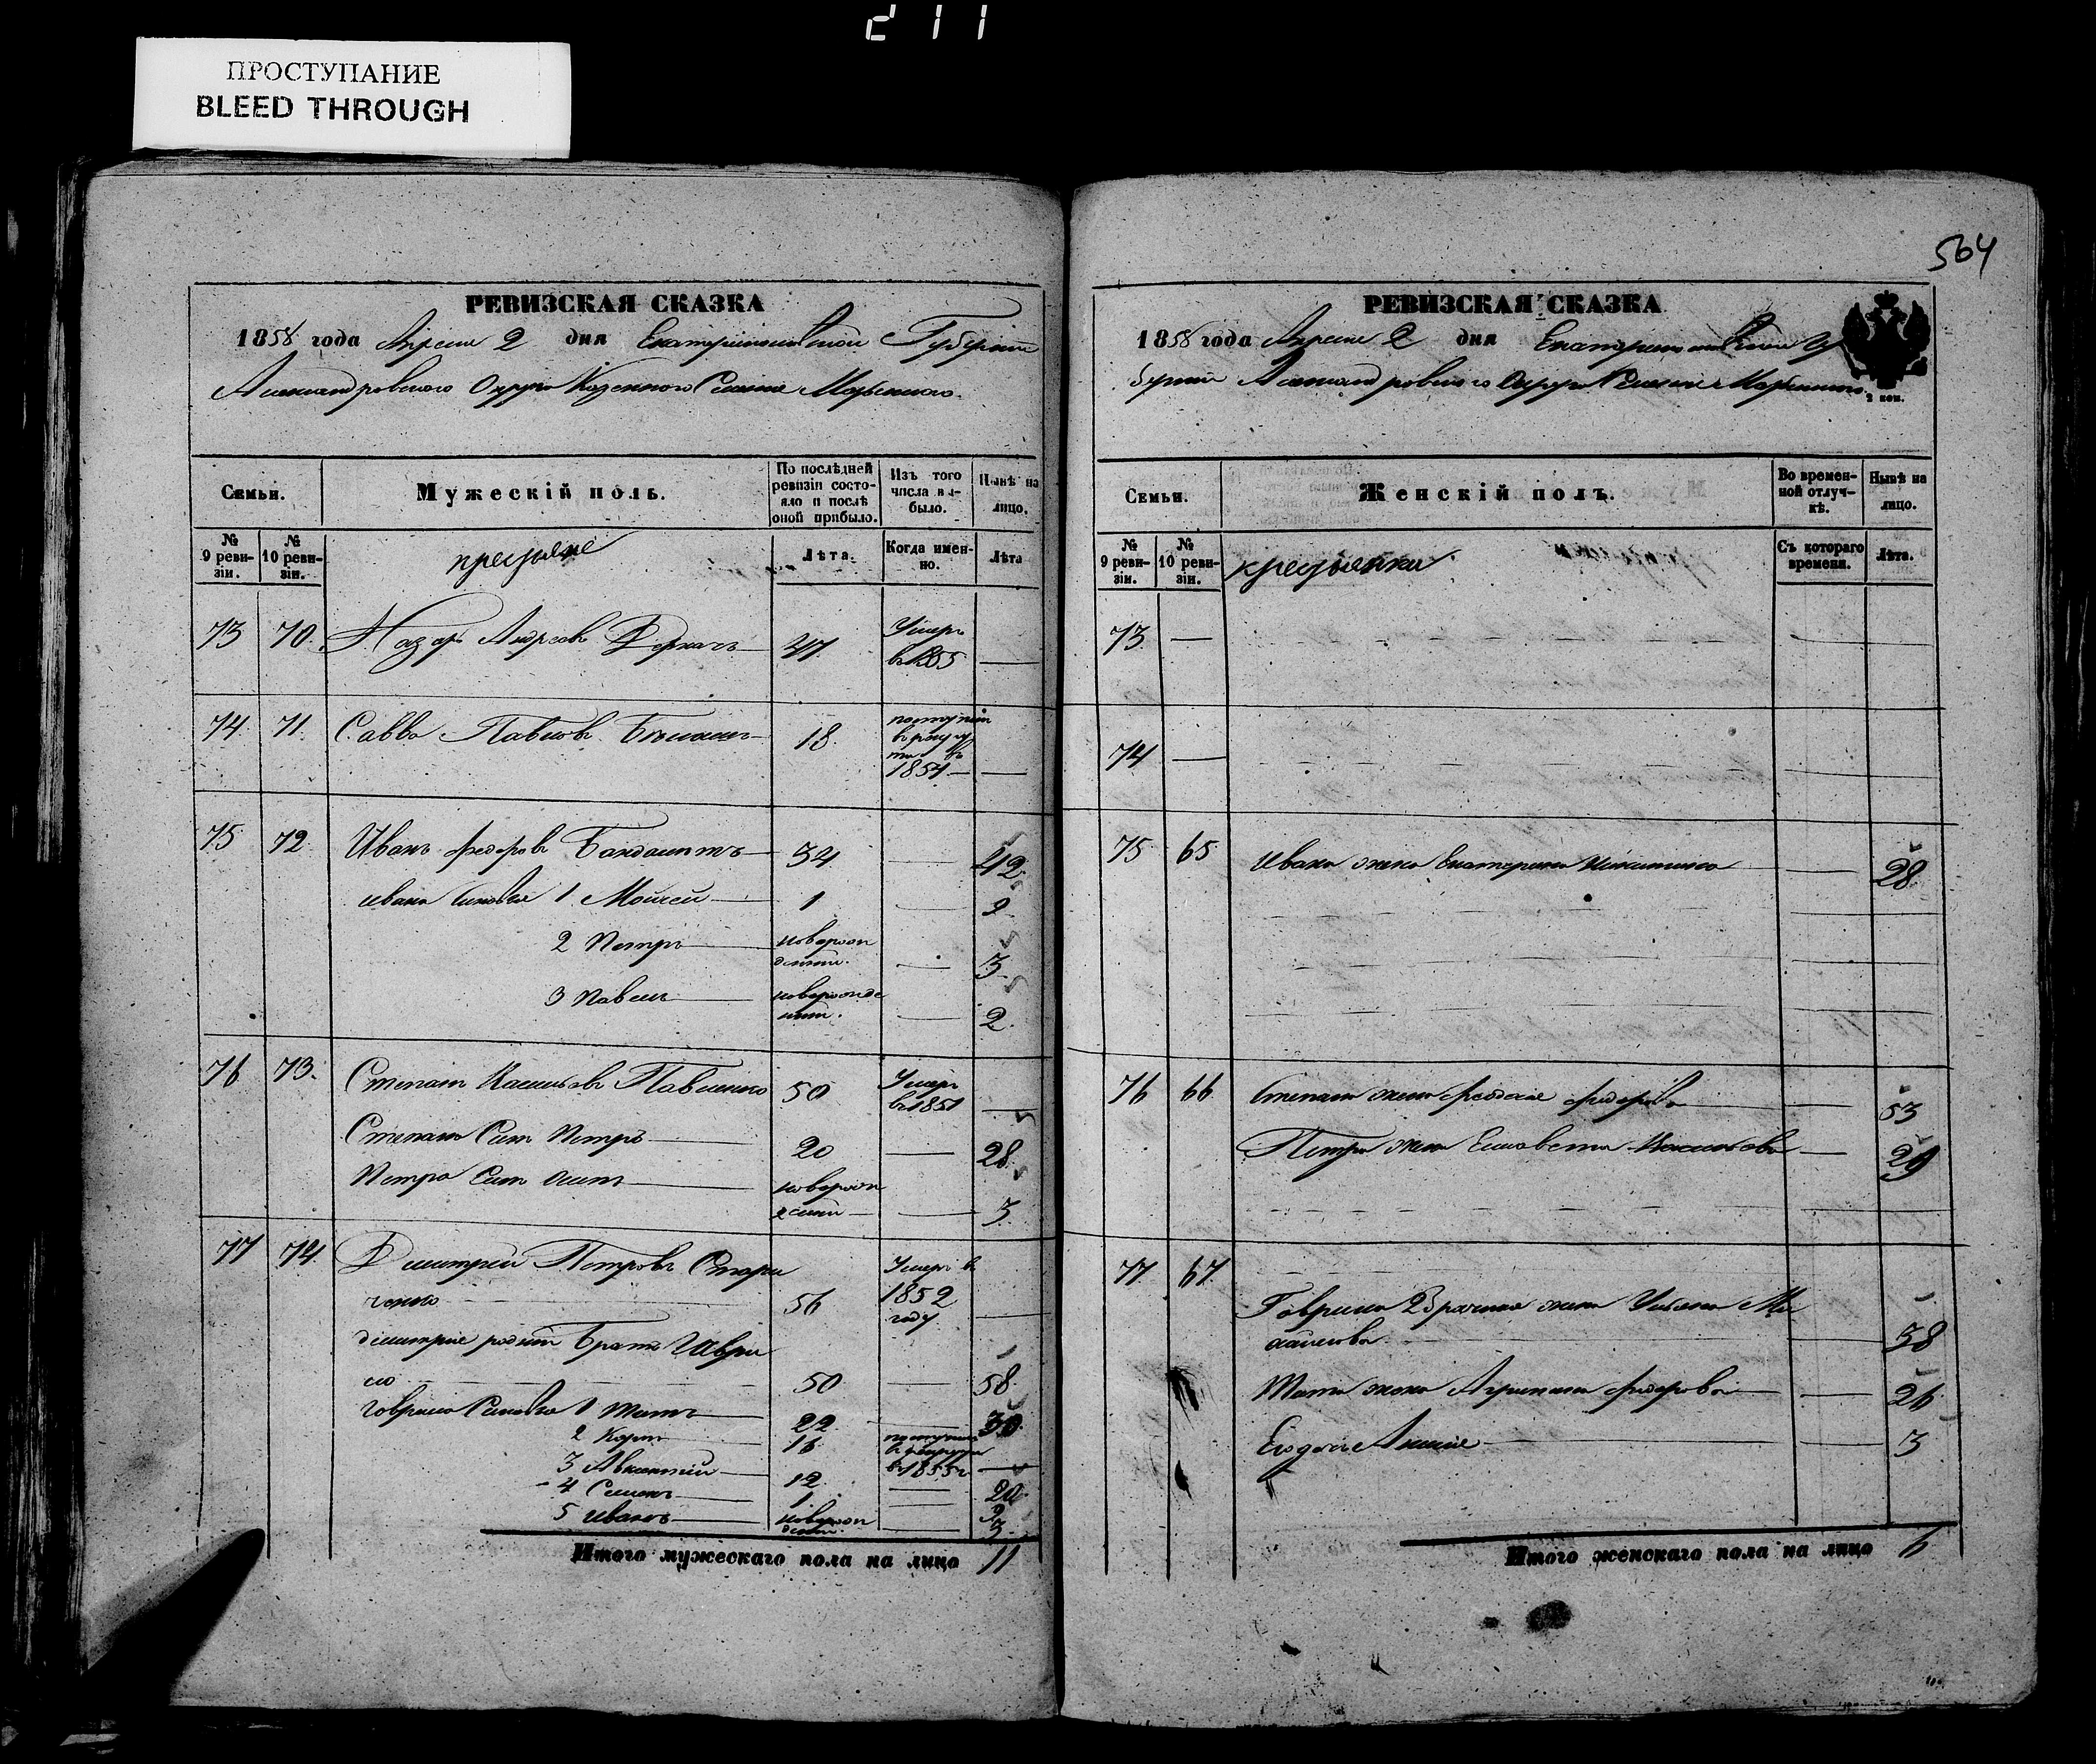 211
ПРОСТУПАНИЕ
BLEED THROUGH
564
РЕВИЗСКАЯ СКАЗКА
1858 года Апреля 2 дня Екатеринославской Губернии
Александровского Округа Казенного Селения Марьинского.
Семьи.
Мужескій полъ.
По послѣдней ревизіи состояло и послѣ оной прибыло.
Изъ того числа выбыло.
Нынѣ на лицо.
№ 9 ревизіи.
№ 10 ревизіи.
крестьяне
Лѣта.
Когда именно.
Лѣта
73 70. Назаръ Андреевъ Деркачъ 47 Умеръ в 1855 —
74 71. Савва Павловъ 18. поступилъ в рекруты в 1854 — —
75 72. Иванъ Федоровъ 34 — 42
Ивана Сыновья 1 Мойсей 1 — 9
2 Петръ новорожденный. — 3
3 Павелъ новорожденный. — 2.
76 73. Степанъ Павленко 50 Умеръ в 1851 —
Степана Сынъ Петръ 20 — 28.
Петра Сынъ новорожденный — — 3.
77 74. Дмитрий Петровъ Стари
ченко 56 Умеръ в 1852 году —
Дмитрия родной Братъ Гаври
ло 50 — 58.
Гаврила Сыновья 1 22 — 30
2 16 поступилъ в рекруты в 1855 г —
3 Авксентий 12. — 20
4 Семенъ 1 — 9
5 Иванъ новорожденный — 3.
Итого мужескаго пола на лицо 11
РЕВИЗСКАЯ СКАЗКА
1858 года Апреля 2 дня Екатеринославской Гу
бернии Александровского Округа Селения Марьинского
2 коп.
Семьи.
Женскій полъ.
Во временной отлучкѣ.
Нынѣ на лицо.
№ 9 ревизіи.
№ 10 ревизіи.
крестьянки
Съ котораго времени.
Лѣта.
73 —
74 —
75 65 Ивана жена Екатерина Никитина — 28.
76 66 Степана жена Федосия Федорова — 53
Петра жена Елисавета — 29
77 67
Гаврила 2 брачная жена Ульяна Ми
хайлова — 38
жена Агрипина Федорова — 26
Его дочь — 3
Итого женскаго пола на лицо 6